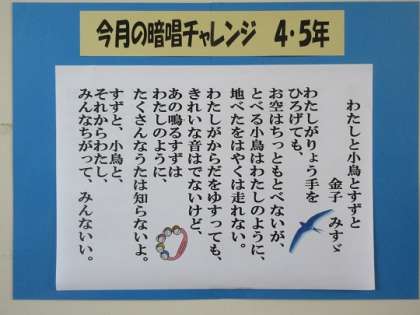 今月の暗唱チャレンジ　４・５年
わたしと小鳥とすずと
金子　みすゞ
わたしがりょう手を
ひろげても、
お空はちっともとべないが、
とべる小鳥はわたしのように、
地べたをはやくは走れない。
わたしがからだをゆすっても、
きれいな音はでないけど、
あの鳴るすずは
わたしのように、
たくさんなうたは知らないよ。
すずと、小鳥と、
それからわたし、
みんなちがって、みんないい。